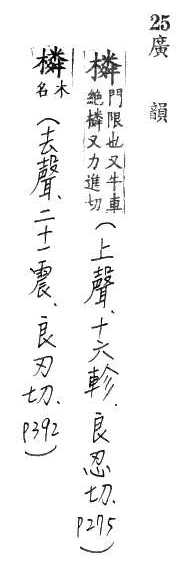 25廣韻
橉門限也又牛車絕橉又力進切(上聲、十六軫、良忍切、P275)
橉木名(去聲、二十一震、良刃切、P392)